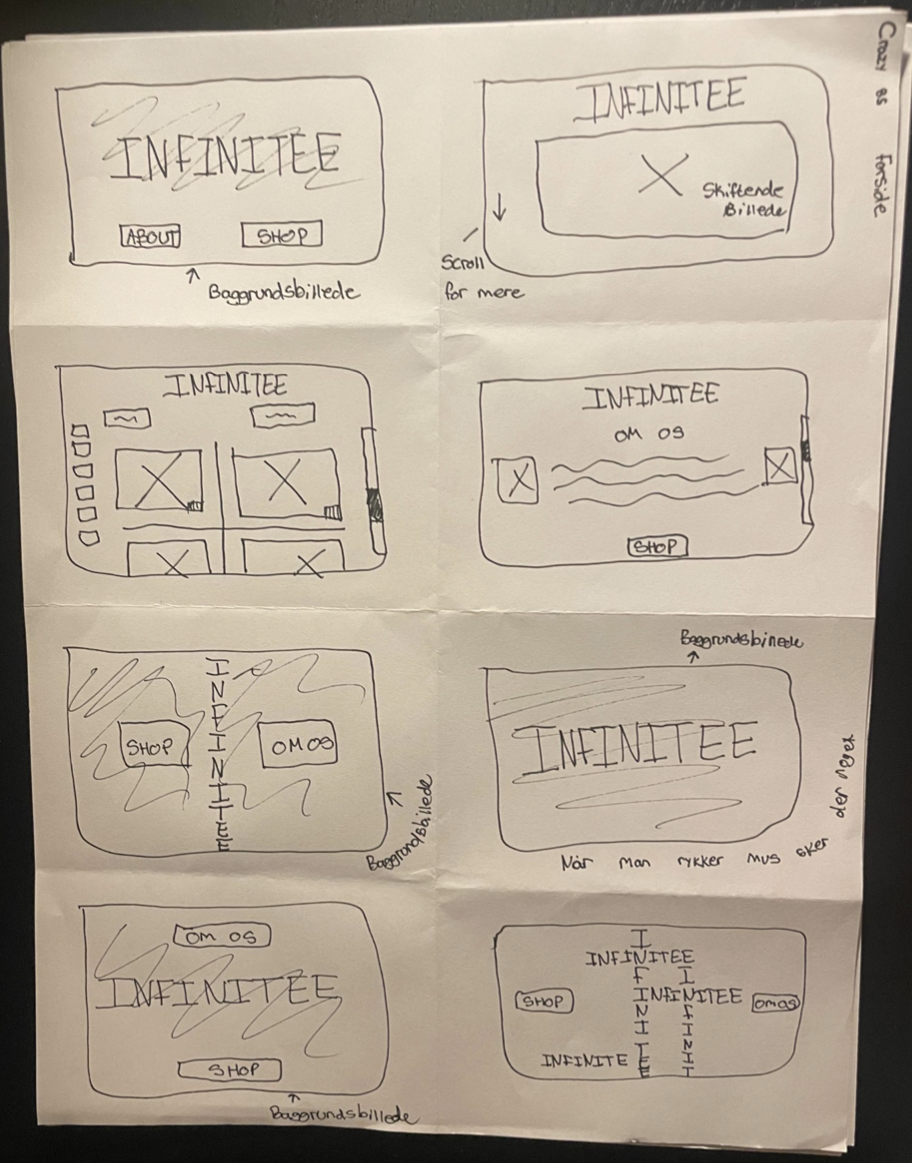 Crazy 8s forside
INFINITEE
ABOUT
SHOP
Baggrundsbillede
INFINITEE
Skiftende
Billede
Scroll
for mere
INFINITEE
INFINITEE
OM OS
SHOP
INFINITEE
SHOP
OM OS
Baggrundsbillede
Baggrundsbillede
INFINITEE
Når man rykker mus sker der noget
OM OS
INFINITEE
SHOP
Baggrundsbillede
INFINITEE
INFINITEE
SHOP
INFINITEE
OM OS
INFINITE
INFINIT